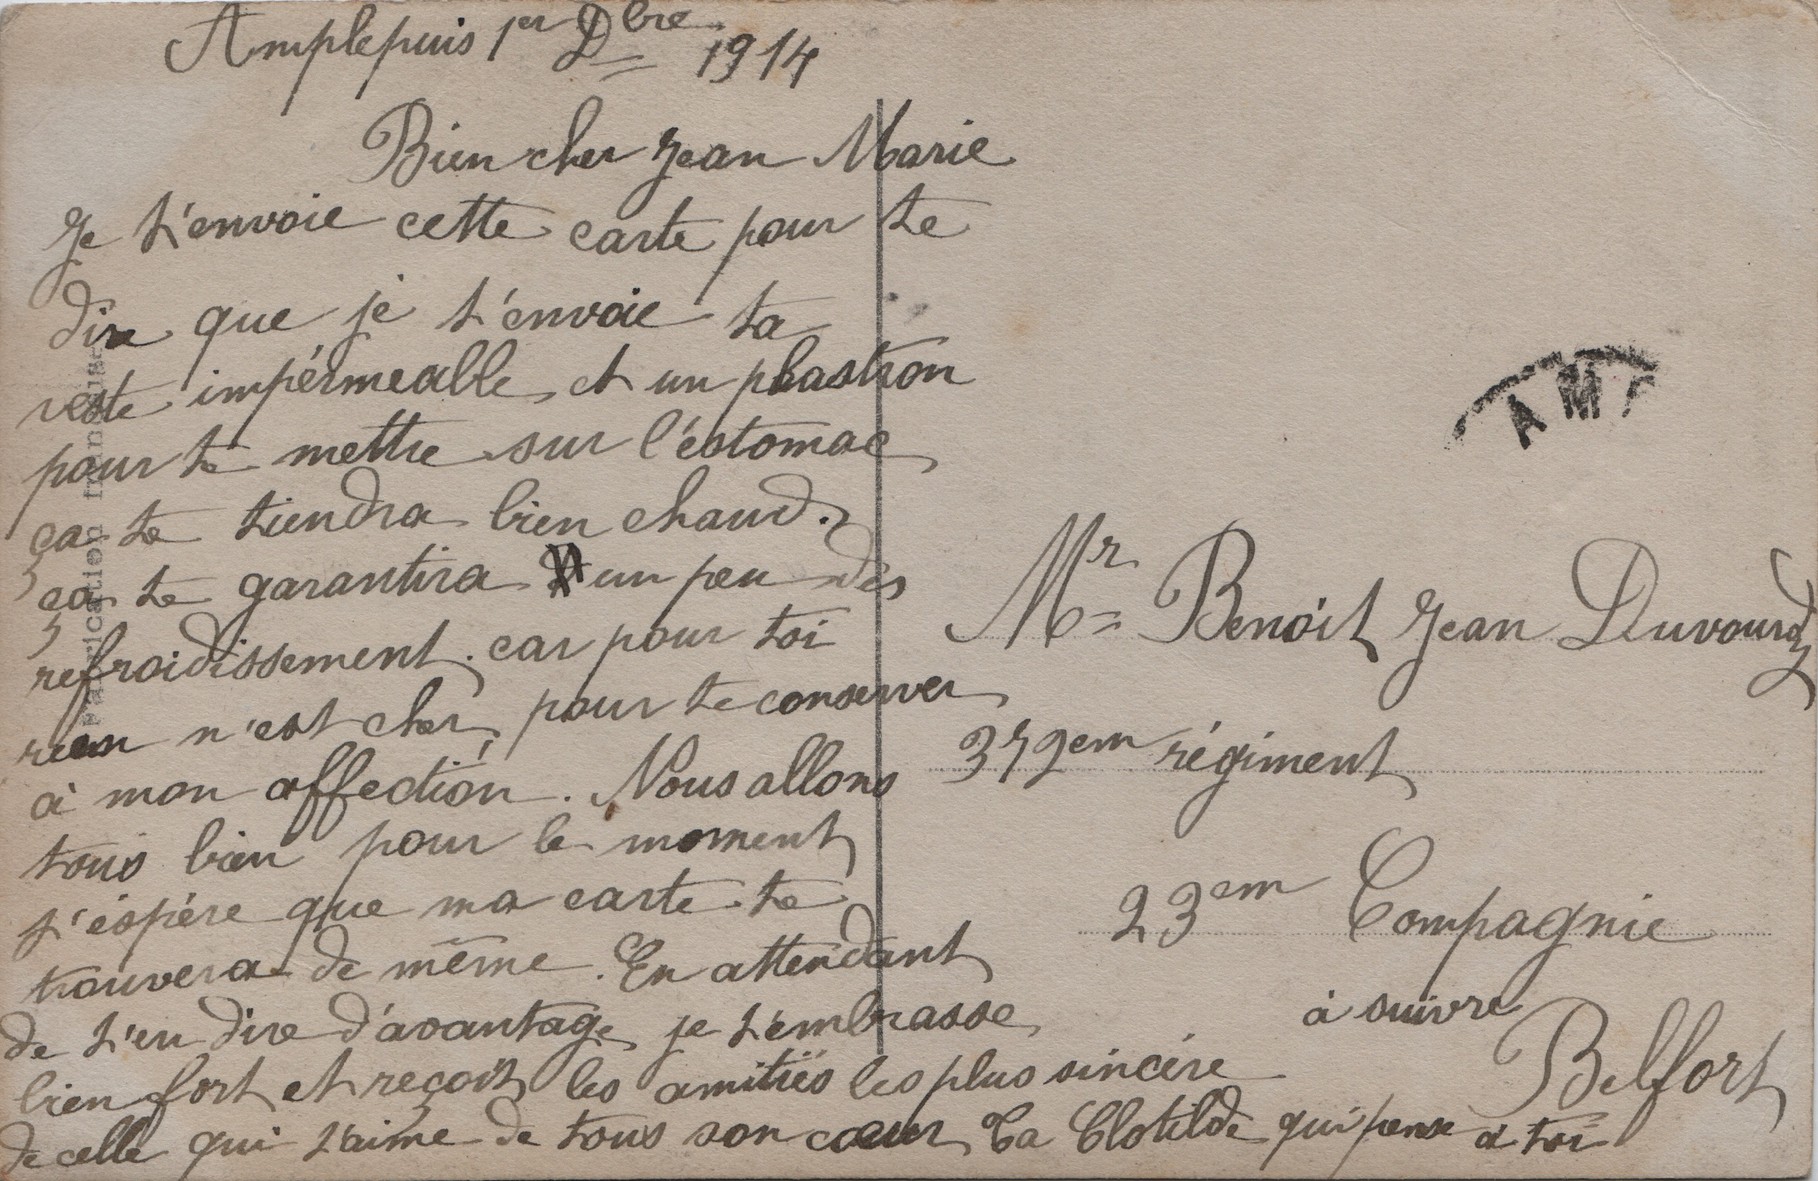 Amplepuis 1er Dbre 1914
Bien cher Jean Marie
Je t'envoie cette carte pour te
dire que je t'envoie ta
veste impérmealle et un plastron
pour te mettre sur l'éstomac
ça te tiendra bien chaud.
ça te garantira un peu des
refroidissement. car pour toi
rien n'est cher, pour te conserver
à mon affection. Nous allons
tous bien pour le moment
j'éspére que ma carte te
trouvera de même. En attendant
de t'en dire d'avantage je t'embrasse
bien fort et reçoit les amitiés les plus sincére
de celle qui t'aime de tous son cœur Ta Clotilde qui pense à toi
Fabrication française
AMP
Mr Benoit Jean Duvourdy
372em régiment
23em Compagnie
à suivre
Belfort